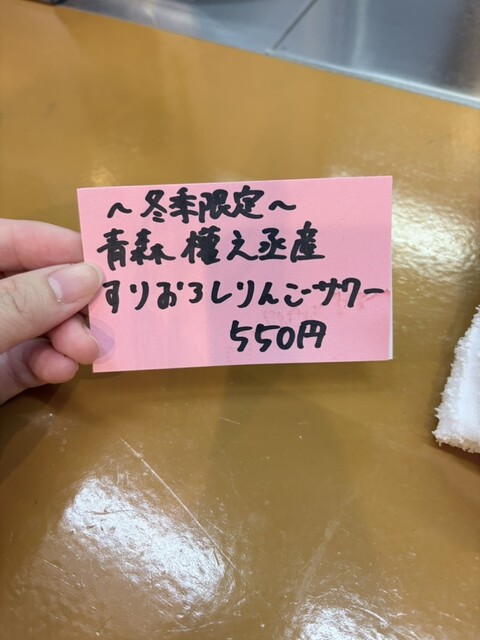 ～冬季限定～
青森 権之丞産
すりおろしりんごサワー
550円